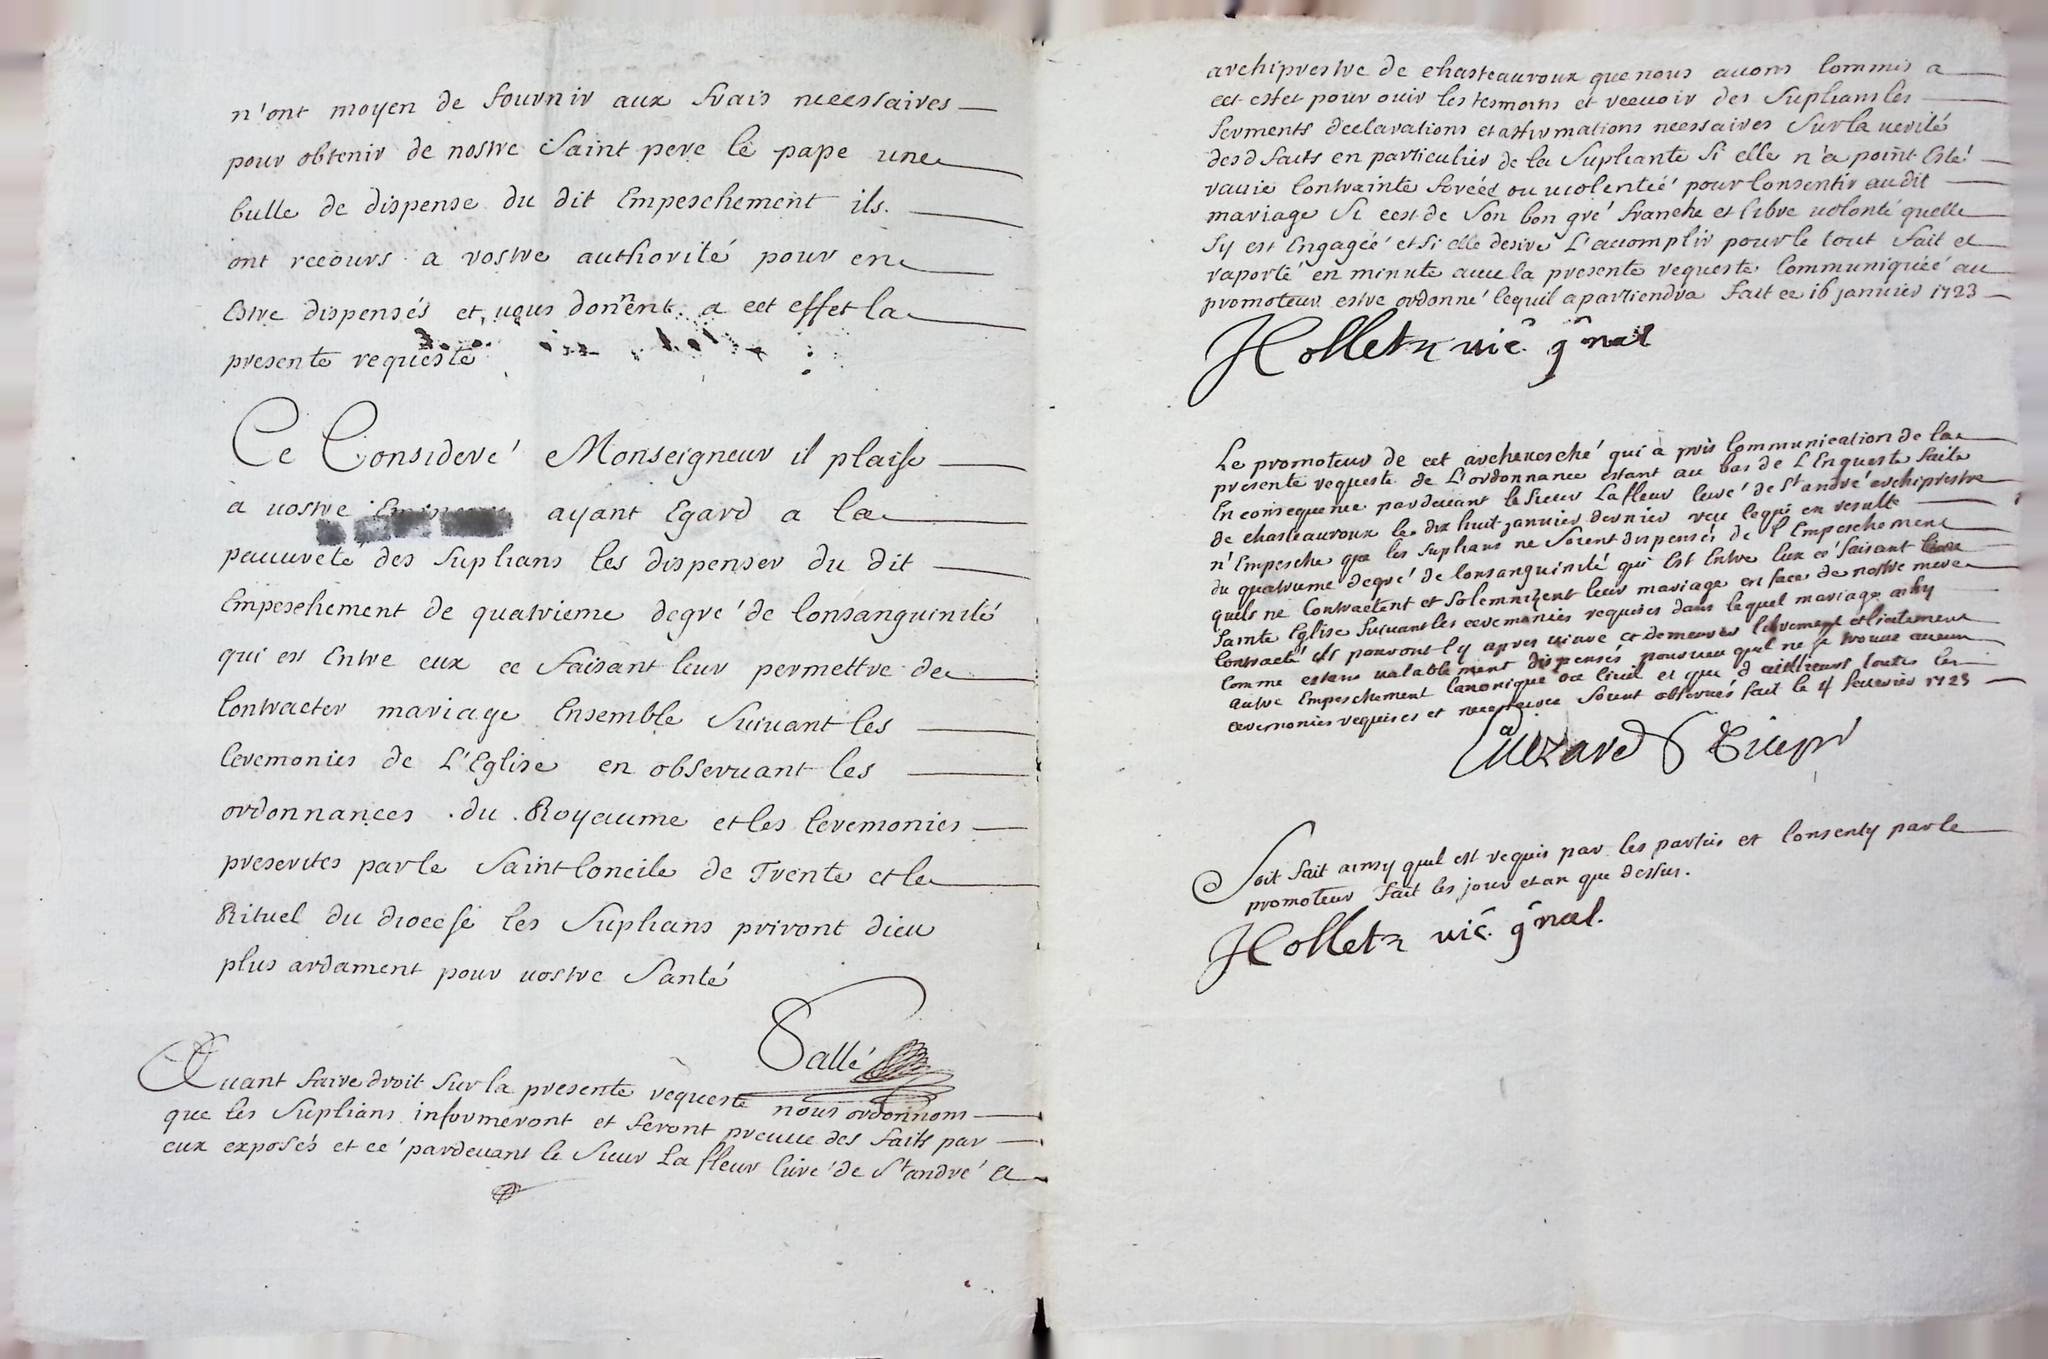 n'ont moyen de fournir aux frais necessaires
pour obtenir de nostre Saint pere le pape une
bulle de dispense du dit Empeschement ils
ont recours a vostre authorité pour en
Estre dispensés et vous donn̄ent a cet effet la
presente requeste
Ce Consideré Monseigneur il plaise
a vostre ayant Egard a la
pauureté des Suplians les dispenser du dit
Empeschement de quatrieme degré de Consanguinité
qui est Entre eux ce faisant leur permettre de
Contracter mariage Ensemble Suiuant les
Ceremonies de L'Eglise en obseruant les
ordonnances du Royaume et les Ceremonies
prescrites par le Saint Concile de Trente et le
Rituel du diocese les Suplians priront dieu
plus ardament pour vostre Santé
Sallé
Auant faire droit Sur la presente requeste nous ordonnons
que les Suplians informeront et feront preuue des faits par
eux exposés et ce pardeuant le Sieur Lafleur Curé de St andré A
archiprestre de Chasteauroux que nous auons Commis a
cet effet pour ouir les tesmoins et receuoir des Suplians les
Serments declarations et affirmations necessaires Sur la uerité
desd faits en particulier de la Supliante Si elle n'a point Esté
rauie Contrainte forcéé ou uiolentéé pour Consentir au dit
mariage Si cest de Son bon gré franche et libre uolonté quelle
Sy est Engagéé et Si elle desire L'accomplir pour le tout fait et
raporté en minute auec la presente requeste Communiquéé au
promoteur estre ordonné ce quil apartiendra Fait ce 16 januier 1723
Holletz uic. gn̂al
Le promoteur de cet archeuesché qui a pris Communication de la
presente requeste de L'ordonnance estant au bas de L'Enqueste faite
En consequence pardeuant le Sieur Lafleur Curé de St andré archiprestre
de chasteauroux le dix huit januier dernier ueu ce qui en resulte
n'Empesche que les Suplians ne Soient dispensés de l'Empeschement
du quatrieme degré de Consanguinité qui Est Entre Eux ce faisant
quils ne Contractent et Solemnizent leur mariage en face de nostre mere
Sainte Eglise Suiuant les ceremonies requises dans lequel mariage ainsy
Contracté ils pourront cy apres uiure et demeurer librement et licitement
Comme estans ualablement dispensés pourueu quil ne se trouue aucun
autre Empeschement Canonique ou Ciuil et que d'aillieurs toutes les
ceremonies requises et necessaires Soient obserués fait le 4 feurier 1723
Soit fait ainsy quil est requis par les parties et Consenty par le
promoteur Fait les jour et an que dessus.
Holletz uic. gn̂al.